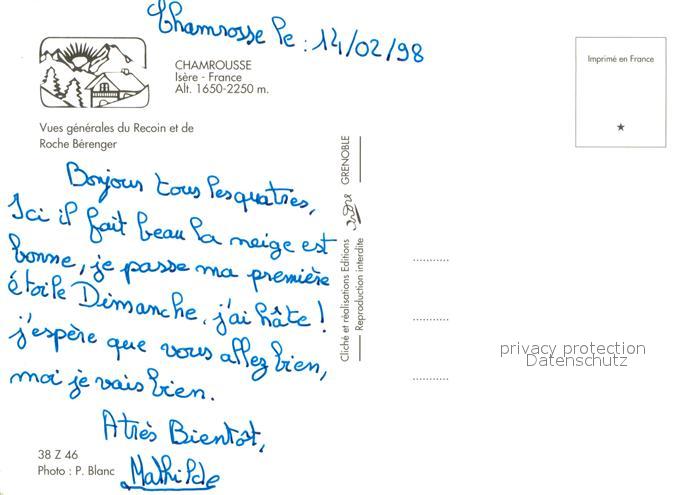 Chamrosse le : 14/02/98
CHAMROUSSE
Isère - France
Alt. 1650-2250 m.
Imprimé en France
Vues générales du Recoin et de
Roche Bérenger
Bonjour tous les quatres,
Ici il fait beau la neige est
bonne, je passe ma première
étoile Dimanche, j'ai hâte !
j'espère que vous allez bien,
moi je vais bien.
A très Bientôt,
Mathilde
38 Z 46
Photo : P. Blanc
Cliché et réalisations Editions
GRENOBLE
Reproduction interdite
privacy protection
Datenschutz